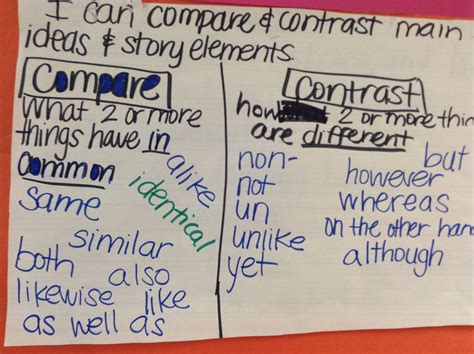 I can compare & contrast main
ideas & story elements.
Compare
What 2 or more
things have in
common
alike
identical
same
similar
both also
likewise like
as well as
Contrast
how 2 or more thin
are different
non-
not
un
unlike
yet
but
however
whereas
on the other han
although